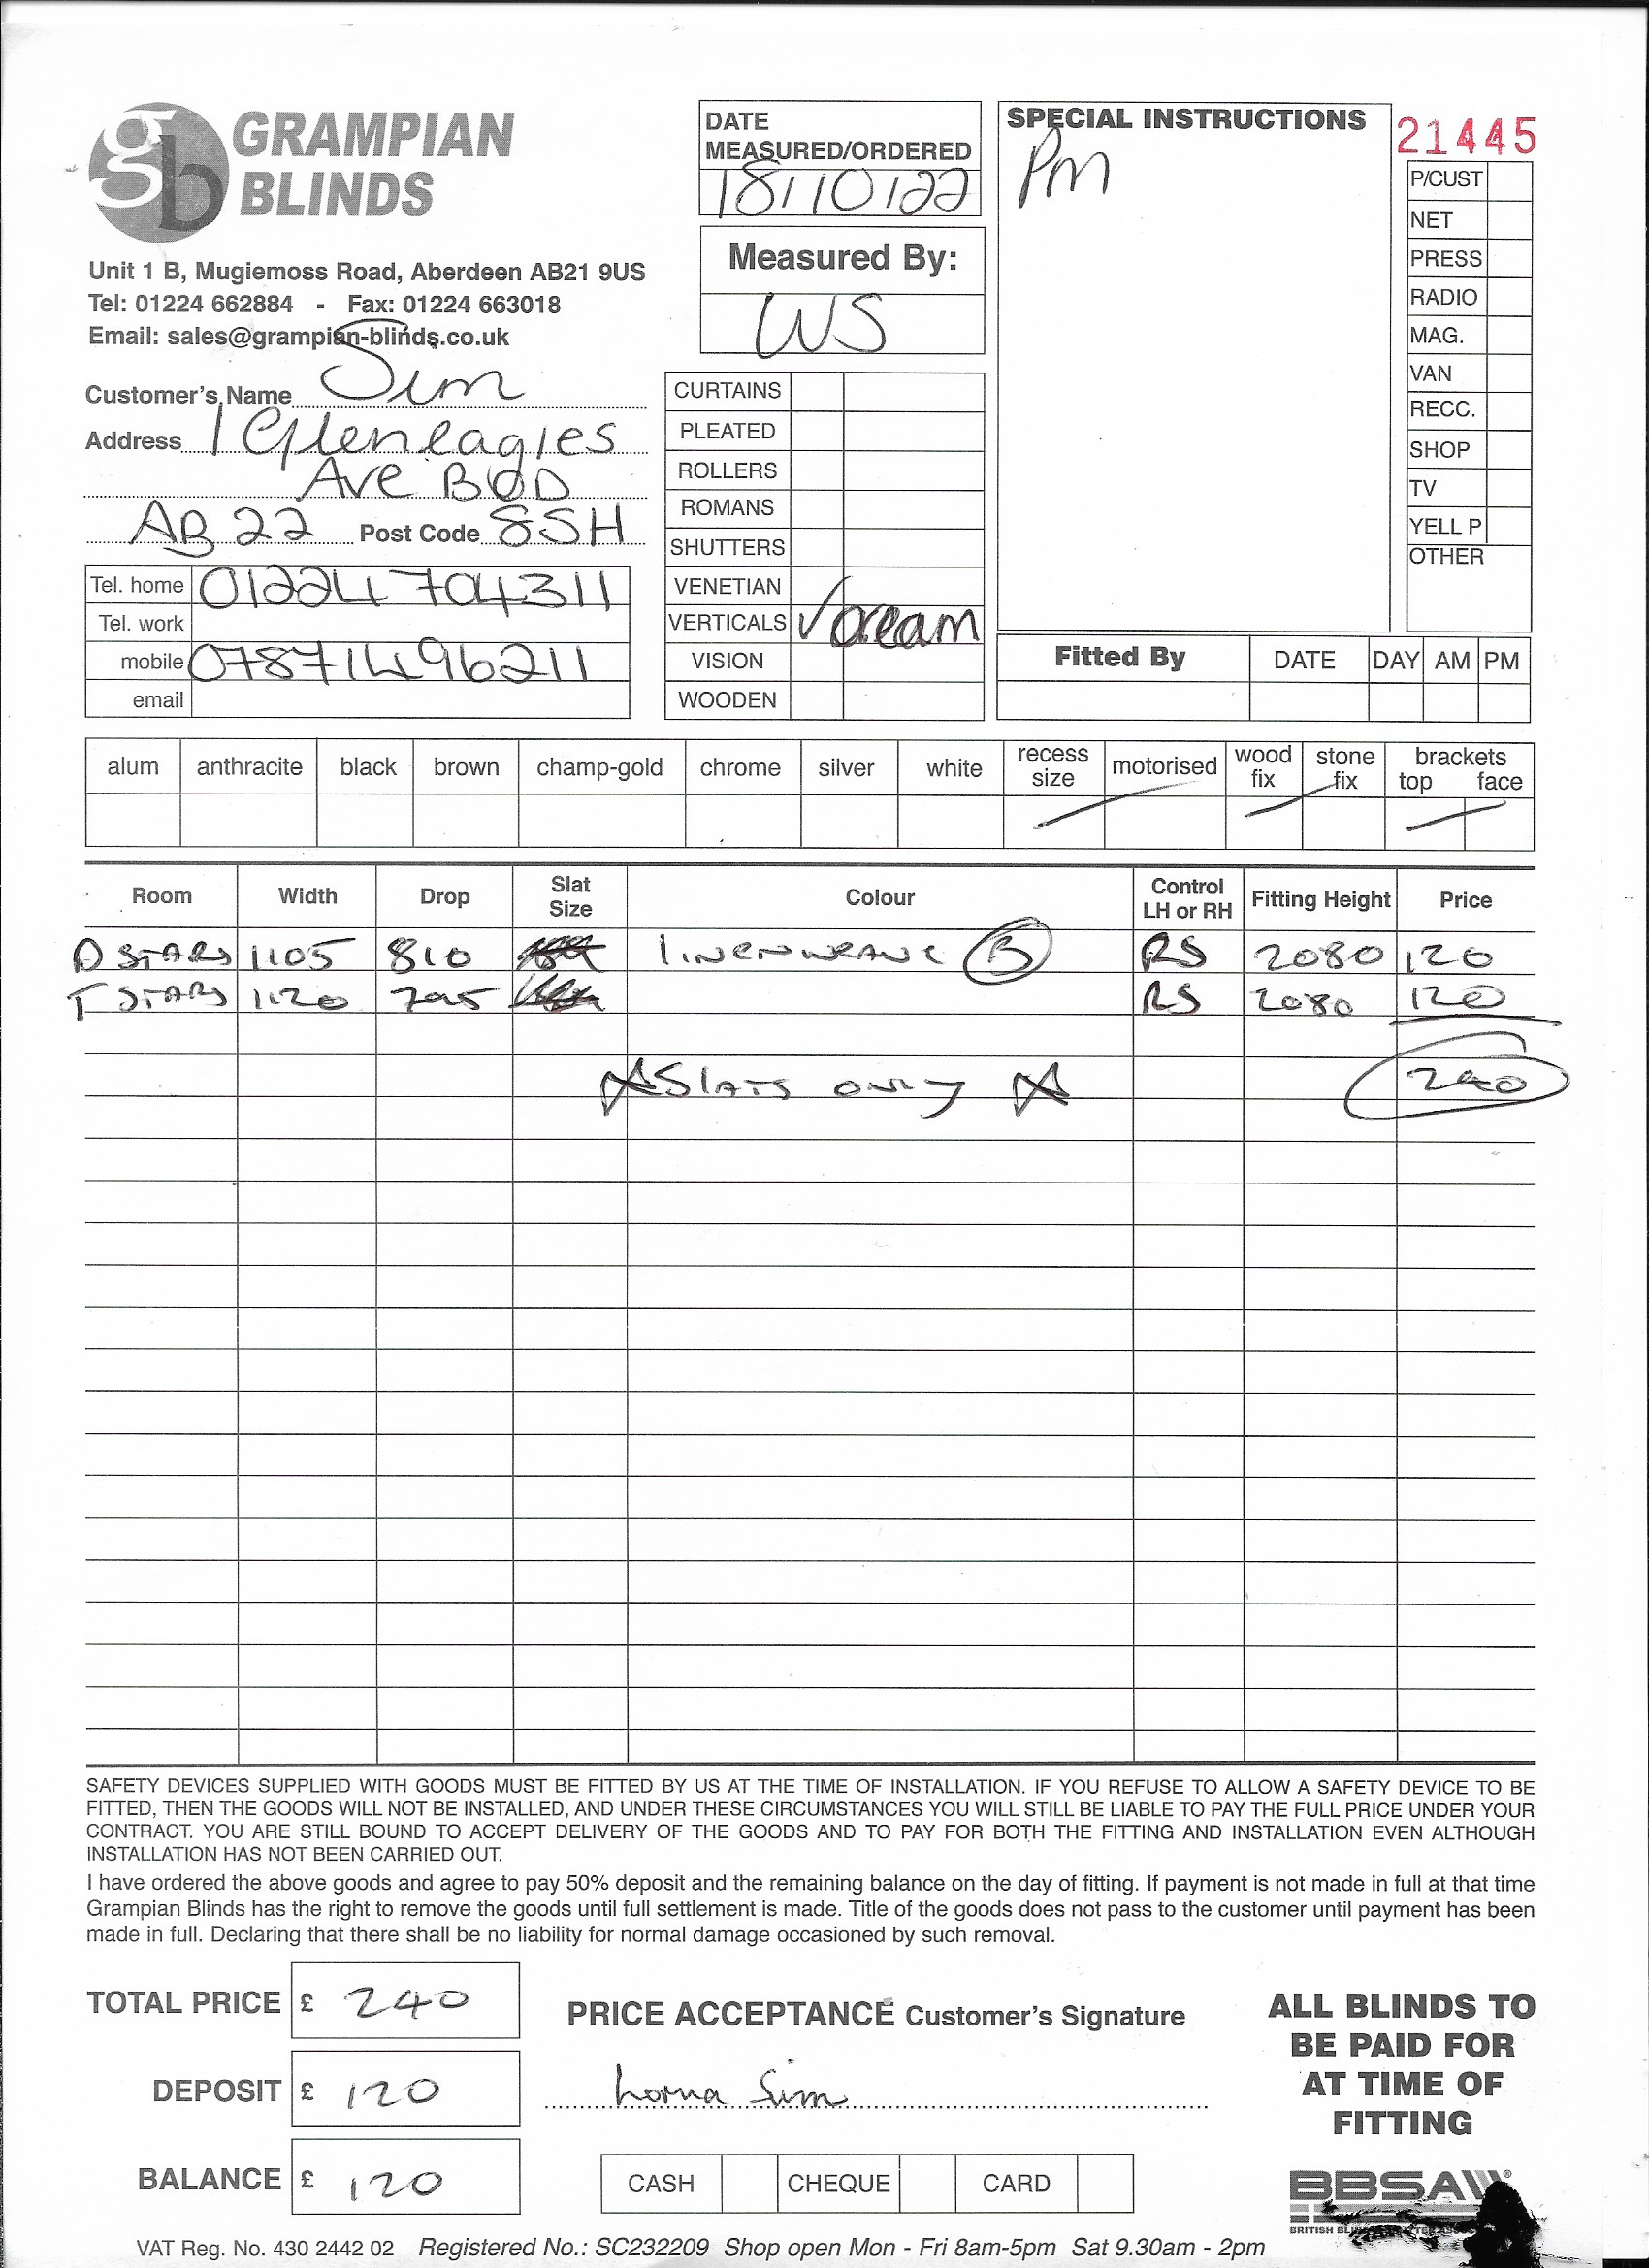 GRAMPIAN
BLINDS
Unit 1 B, Mugiemoss Road, Aberdeen AB21 9US
Tel: 01224 662884 - Fax: 01224 663018
Email: sales@grampian-blinds.co.uk
Customer's Name Sim
Address 1 Gleneagles
Ave BOD
AB22 Post Code 8SH
Tel. home 01224 704311
Tel. work
mobile 07871496211
email
DATE
MEASURED/ORDERED
18/10/22
Measured By:
WS
CURTAINS
PLEATED
ROLLERS
ROMANS
SHUTTERS
VENETIAN
VERTICALS ✓ cream
VISION
WOODEN
SPECIAL INSTRUCTIONS
Pm
21445
P/CUST
NET
PRESS
RADIO
MAG.
VAN
RECC.
SHOP
TV
YELL P
OTHER
Fitted By DATE DAY AM PM
alum anthracite black brown champ-gold chrome silver white recess size motorised wood fix stone fix brackets top face
Room Width Drop Slat Size Colour Control LH or RH Fitting Height Price
1105 810 B RS 2080 120
1120 RS 2080 120
SLATS ONLY 240
SAFETY DEVICES SUPPLIED WITH GOODS MUST BE FITTED BY US AT THE TIME OF INSTALLATION. IF YOU REFUSE TO ALLOW A SAFETY DEVICE TO BE
FITTED, THEN THE GOODS WILL NOT BE INSTALLED, AND UNDER THESE CIRCUMSTANCES YOU WILL STILL BE LIABLE TO PAY THE FULL PRICE UNDER YOUR
CONTRACT. YOU ARE STILL BOUND TO ACCEPT DELIVERY OF THE GOODS AND TO PAY FOR BOTH THE FITTING AND INSTALLATION EVEN ALTHOUGH
INSTALLATION HAS NOT BEEN CARRIED OUT.
I have ordered the above goods and agree to pay 50% deposit and the remaining balance on the day of fitting. If payment is not made in full at that time
Grampian Blinds has the right to remove the goods until full settlement is made. Title of the goods does not pass to the customer until payment has been
made in full. Declaring that there shall be no liability for normal damage occasioned by such removal.
TOTAL PRICE £ 240
DEPOSIT £ 120
BALANCE £ 120
PRICE ACCEPTANCE Customer's Signature
Lorna Sim
CASH CHEQUE CARD
ALL BLINDS TO
BE PAID FOR
AT TIME OF
FITTING
BBSA
BRITISH
VAT Reg. No. 430 2442 02 Registered No.: SC232209 Shop open Mon - Fri 8am-5pm Sat 9.30am - 2pm